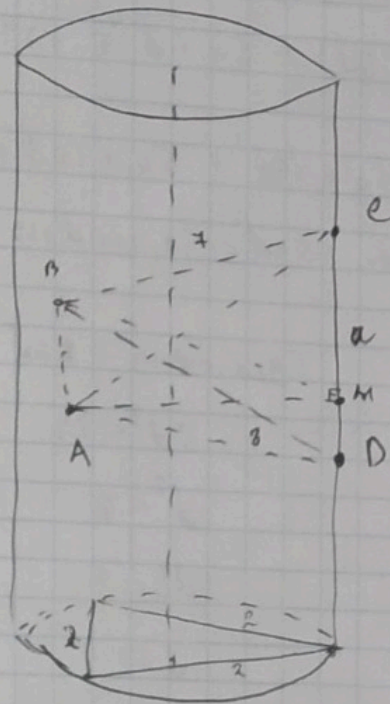 C
7
B
a
M
A
8
D
2
2
2